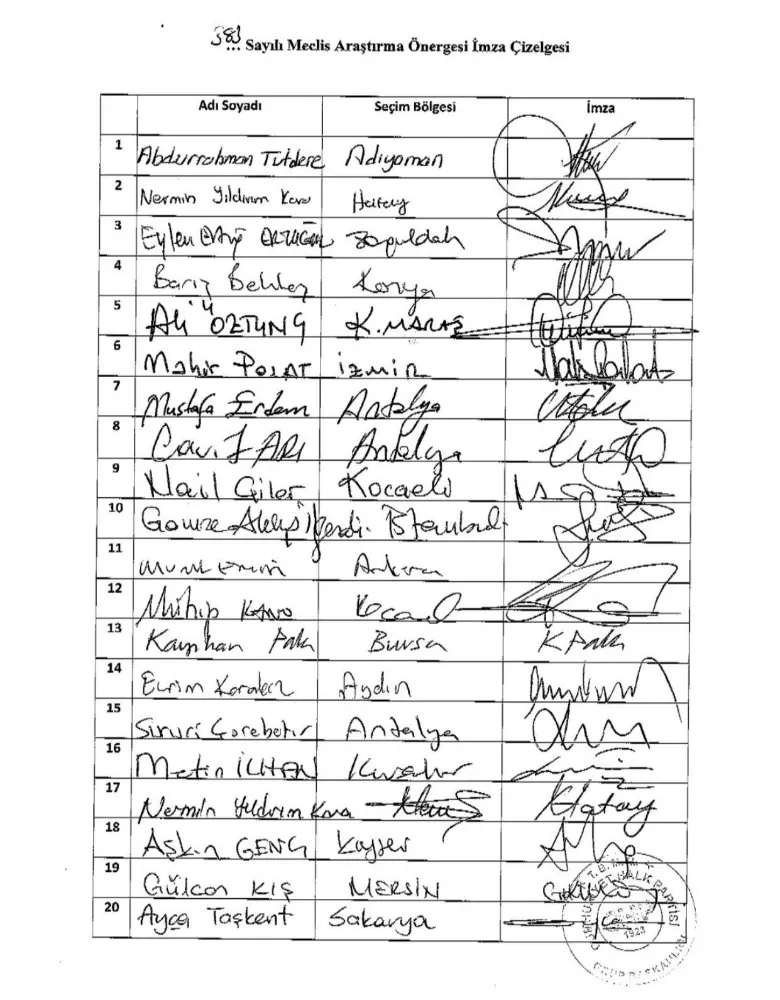 383 Sayılı Meclis Araştırma Önergesi İmza Çizelgesi
Adı Soyadı Seçim Bölgesi İmza
1 Abdurrahman Tutdere Adıyaman
2 Nermin Yıldırım Kara Hatay
3 Eylem Ertuğ ERTUĞRUL Zonguldak
4 Barış Bektaş Konya
5 Ali ÖZTUNÇ K.MARAŞ
6 Mahir POLAT İZMİR
7 Mustafa Erdem Antalya
8 Cavit ARI Antalya
9 Nail Çiler Kocaeli
10 Gamze Akkuş İlgezdi İstanbul
11 Murat Emir Ankara
12 Mühip KANKO Kocaeli
13 Kayıhan Pala Bursa K Pala
14 Evrim Karakoz Aydın
15 Sururi Çorabatır Antalya
16 Metin İLHAN Kırşehir
17 Nermin Yıldırım Kara Hatay
18 Aşkın GENÇ Kayseri
19 Gülcan KIŞ MERSİN
20 Ayça Taşkent Sakarya
T.B.M.M.
CUMHURİYET HALK PARTİSİ
1923
GRUP BAŞKANLIĞI